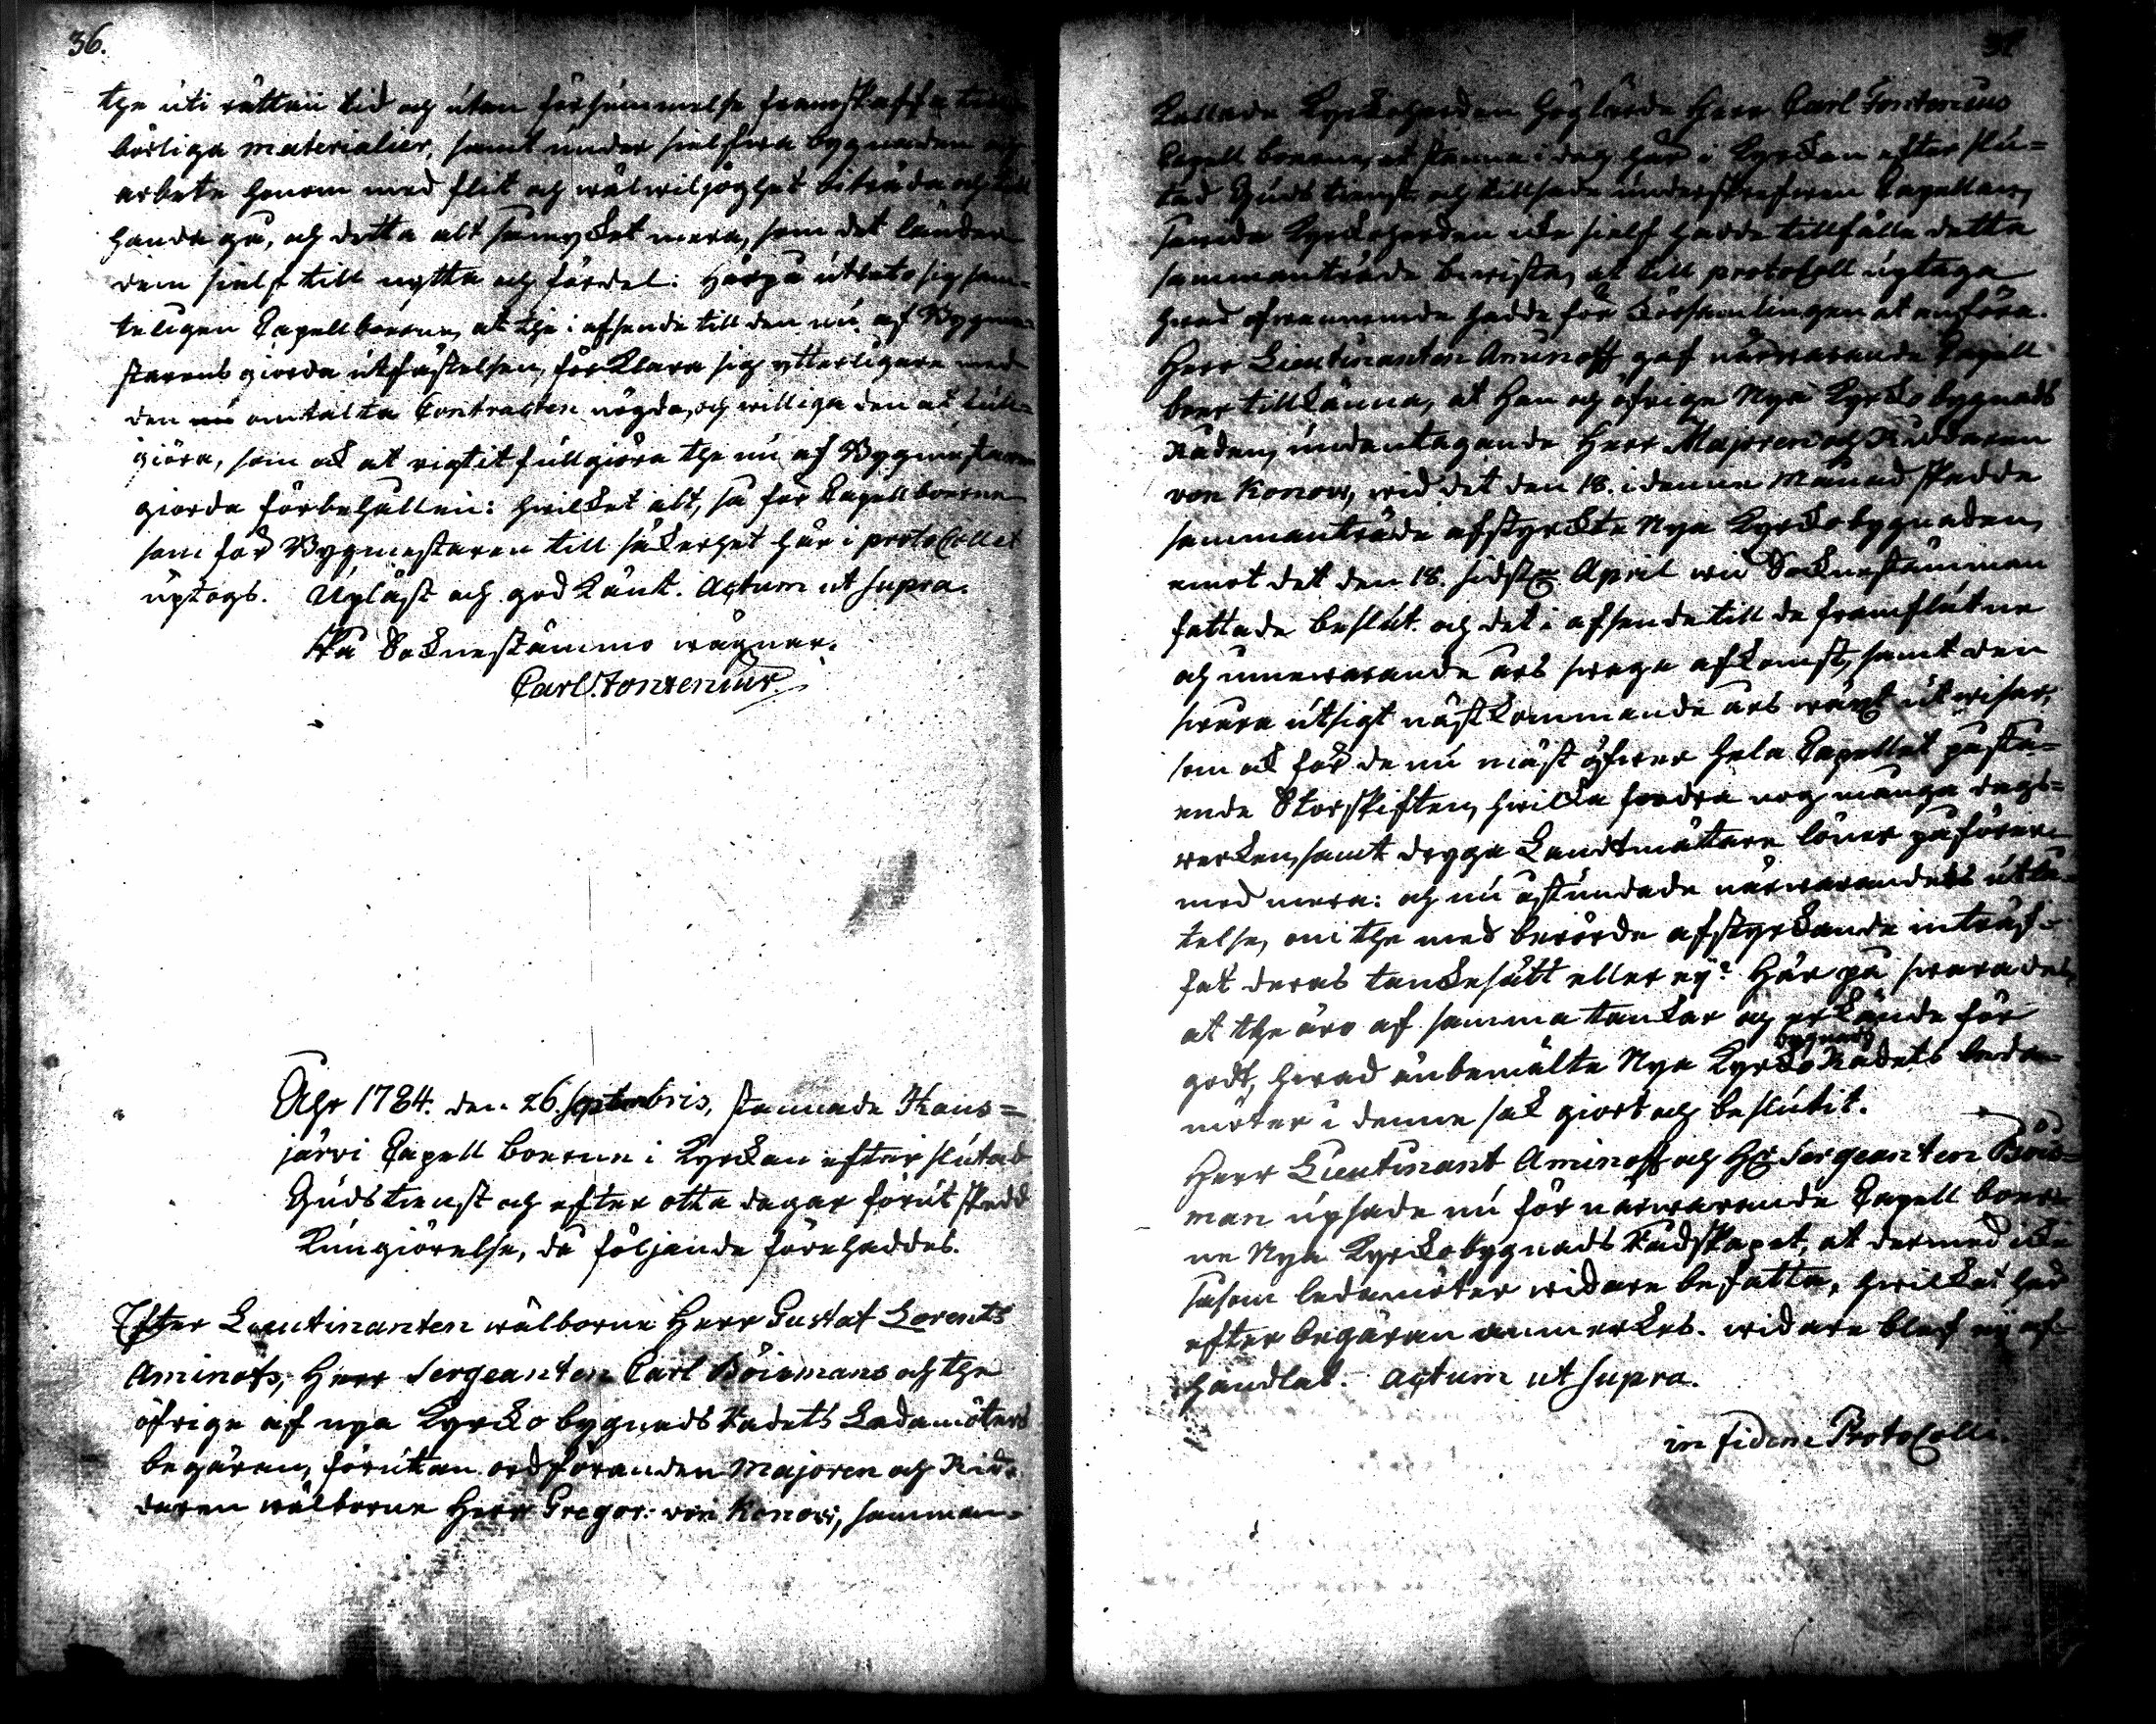 36.
the uti rättan tid och utan försummelse framskaffa
börliga materialier, samt under sielfwa bygnaden och
arbete honom med flit och wälwiljoghet biträda och till
handa gå, och detta alt så mycket mera, som det länder
dem sielf till nytta och fördel: Härpå utläto sig sam-
teligen Capellboerne, at the i afseende till den nu af Bygme-
starens giorda utfästelsen, förklara sig ytterligare med
den nu omtalta Contracten nögda, och williga den at full-
giöra, som ock at rigtit fullgiöra the nu af Bygmestaren
giorda förbehållen: hwilket alt, så för Capellboerne
som för Bygmestaren till säkerhet här i protocollet
uptogs. Upläst och godkänt. Actum ut supra.
På Soknestämmo wägnar.
Carl Fontenius
Åhr 1784. den 26 Septembris, stannade Haus=
järvi Capell boerne i Kyrckan efter slutad
Gudstienst och efter otta dagar förut skedd
Kungiörelse, då följande förehaddes.
Efter Lieutinanten wälborne Herr Gustaf Lorents
Aminofs, Herr Sergeanten Carl Böismans och the
öfrige af nya Kyrcko bygnads Rådets Ledamöters
begäran, förutan ordföranden Majoren och Rid-
daren wälborne Herr Gregor: von Konow, samman-
37
kallade Kyrckoherden Höglärde Herr Carl Fontenius
Capell boerne, at stanna i dag här i Kyrckan efter slu=
tad Guds tienst och tillsade underskrefwen Capellan,
sawida Kyrckoherden icke sielf hade tillfälle detta
sammanträde bewista, at till protocoll uptaga
hwad ofwannemde hadde för Församlingen at anföra.
Herr Lieutinanten Aminoff gaf närwarande Capell
boer tillkänna, at Han och öfrige Nya Kyrko bygnads
Råden, undantagande Herr Majoren och Riddaren
von Konow, wid det den 18. i denne Månad skedde
sammanträde afstyrckte Nya Kyrckobygnaden,
emot det den 18. sidstl. April wid Soknestämman
fattade beslut. och det i afseende till de framflutne
och innewarande års swaga afkomst, samt den
swåra utsigt nästkommande års wäxt utwisar,
som ock för de nu mäst öfwer hela Capellet pästå=
ende Storskiften, hwilka fordra nog många dags=
wercken, samt dryga Landtmätare löner påförer
med mera: och nu åstundade närwarandes utlå-
telse, om the med berörde afstyrckande inträf-
fat deras tanckesätt eller ej? Här på swarades,
at the äro af samma tanckar och erkände för
godt, hwad anbemälte Nya Kyrcko bygnads Rådets leda-
möter i denne sak giort och beslutit.
Herr Lieutinant Aminoff och Hr Sergeanten Böis-
man upsade nu för närwarande Capell boer-
ne Nya Kyrckobygnads Rådskapet, at dermed icke
såsom ledamöter widare befatta, hwilket här
efter begäran anmerkes. widare blef ej af-
handlat. Actum ut supra.
in fidem Protocolli.